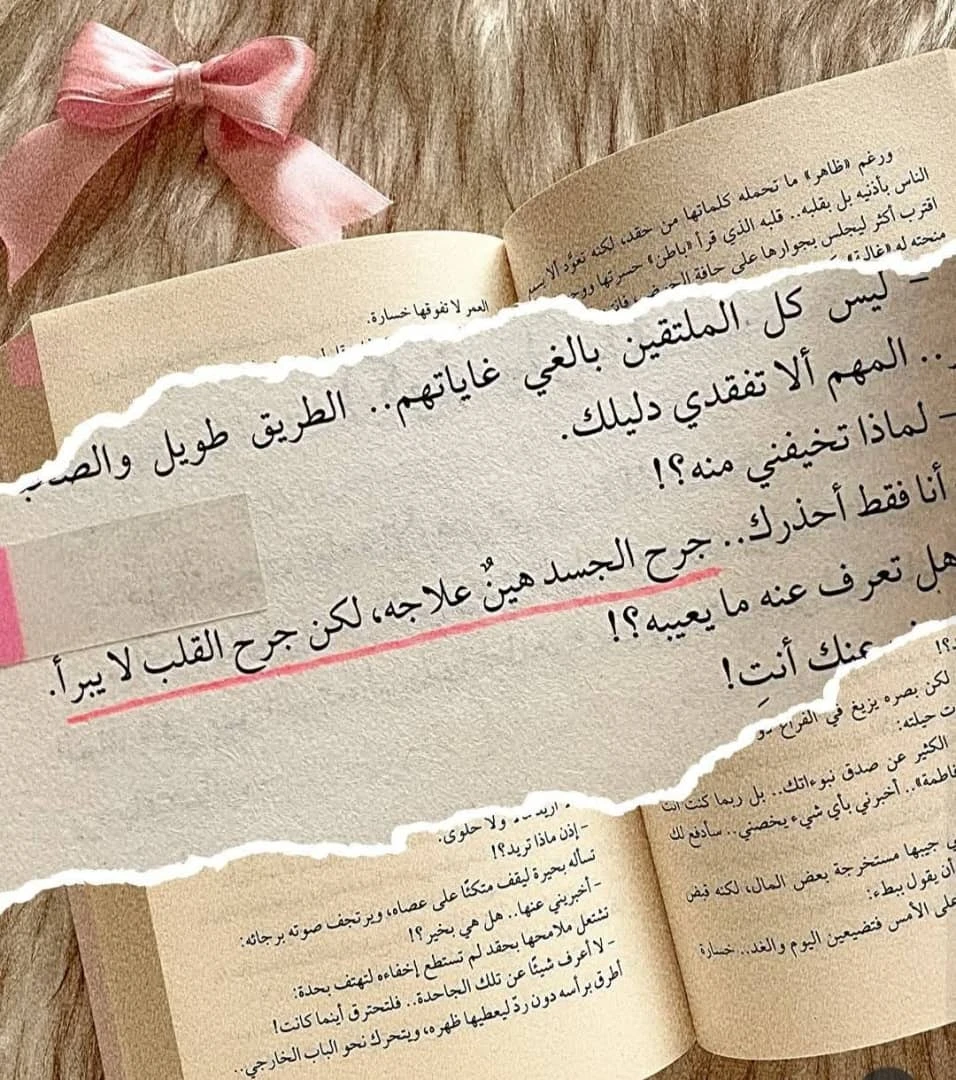 ورغم «ظاهر» ما تحمله كلماتها من حقد، لكنه تعوَّد ألا
الناس بأذنيه بل بقلبه.. قلبه الذي قرأ «باطن» حسرتها
اقترب أكثر ليجلس بجوارها على حافة
منحته له «غالية»
العمر لا تفوقها خسارة.
- ليس كل الملتقين بالغي غاياتهم.. الطريق طويل
.. المهم ألا تفقدي دليلك.
- لماذا تخيفني منه؟!
أنا فقط أحذرك.. جرح الجسد هينٌ علاجه، لكن جرح القلب لا يبرأ.
هل تعرف عنه ما يعيبه؟!
عنك أنتِ!
لكن بصره يزيغ في الفراغ
ت حيلته:
الكثير عن صدق نبوءاتك.. بل ربما كنت أنت
فاطمة».. أخبرني بأي شيء يخصني.. سأدفع لك
جيبها مستخرجة بعض المال، لكنه قبض
أن يقول ببطء:
على الأمس فتضيعين اليوم والغد.. خسارة
ولا حلوى.
- إذن ماذا تريد؟!
تسأله بحيرة ليقف متكئًا على عصاه، ويرتجف صوته برجائه:
- أخبريني عنها.. هل هي بخير؟!
تشتعل ملامحها بحقد لم تستطع إخفاءه لتهتف بحدة:
- لا أعرف شيئًا عن تلك الجاحدة.. فلتحترق أينما كانت!
أطرق برأسه دون ردّ ليعطيها ظهره، ويتحرك نحو الباب الخارجي..